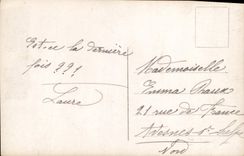 Est-ce la dernière
fois ??!
Laure
Mademoiselle
Emma
21 rue de France
Avesnes s/
Nord